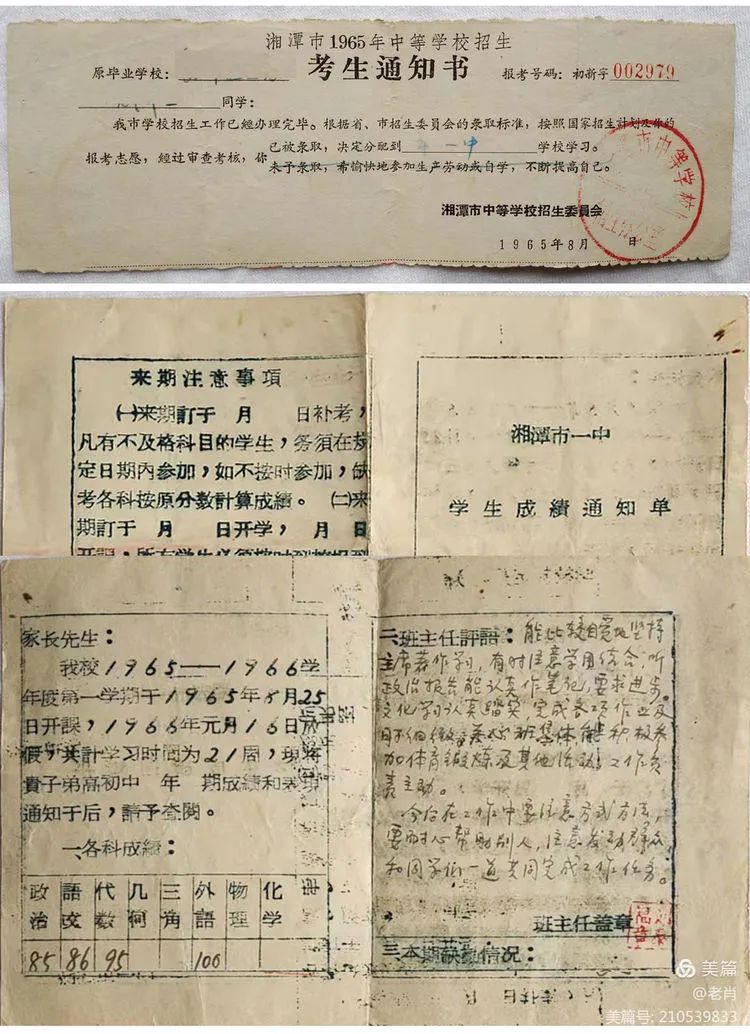 湘潭市1965年中等学校招生
考生通知书
原毕业学校:
报考号码:初新字 002979
同学:
我市学校招生工作已經办理完毕。根据省、市招生委员会的录取标准,按照国家招生計划及你的
报考志愿,經过审查考核,你
已被录取,决定分配到 一中 学校学习。
未予录取,希愉快地参加生产劳动或自学,不断提高自己。
湘潭市中等学校招生委员会
1965年8月 日
来期注意事項
(一)来期訂于 月 日补考,
凡有不及格科目的学生,务須在规
定日期內参加,如不按时参加,缺
考各科按原分数計算成績。(二)来
期訂于 月 日开学, 月 日
开課,所有学生必須按时到校报到
湘潭市一中
学生成績通知单
家长先生:
我校1965——1966学
年度第一学期于1965年8月25
日开課,1966年元月16日放
假,共計学习时間为21周,現将
貴子弟高初中 年 期成績和表現
通知于后,請予查閱。
一各科成績:
政治 語文 代数 几何 三角 外語 物理 化学
85 86 95 100
二班主任評語:能比较自觉地坚持
主席著作学习,有时注意学用结合,听
政治报告能认真作笔记,要求进步。
文化学习认真踏实,完成各项作业及
时细致,关心班集体,能积极参
加体育锻炼及其他活动,工作负
责主动。
今后在工作中要注意方式方法,
要耐心帮助别人,注意发动群众
和同学们一道共同完成工作任务。
班主任盖章
三本期缺勤情况:
美篇
@老肖
美篇号: 210539833